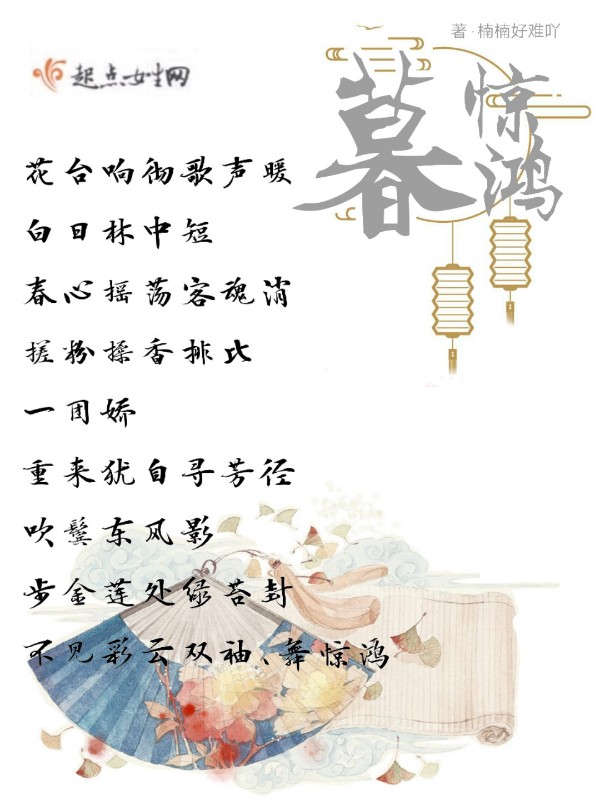 著·楠楠好难吖
起点女生网
暮
惊鸿
花台响彻歌声暖
白日林中短
春心摇荡客魂消
搓粉揉香排比
一团娇
重来犹自寻芳径
吹鬓东风影
步金莲处绿苔封
不见彩云双袖、舞惊鸿